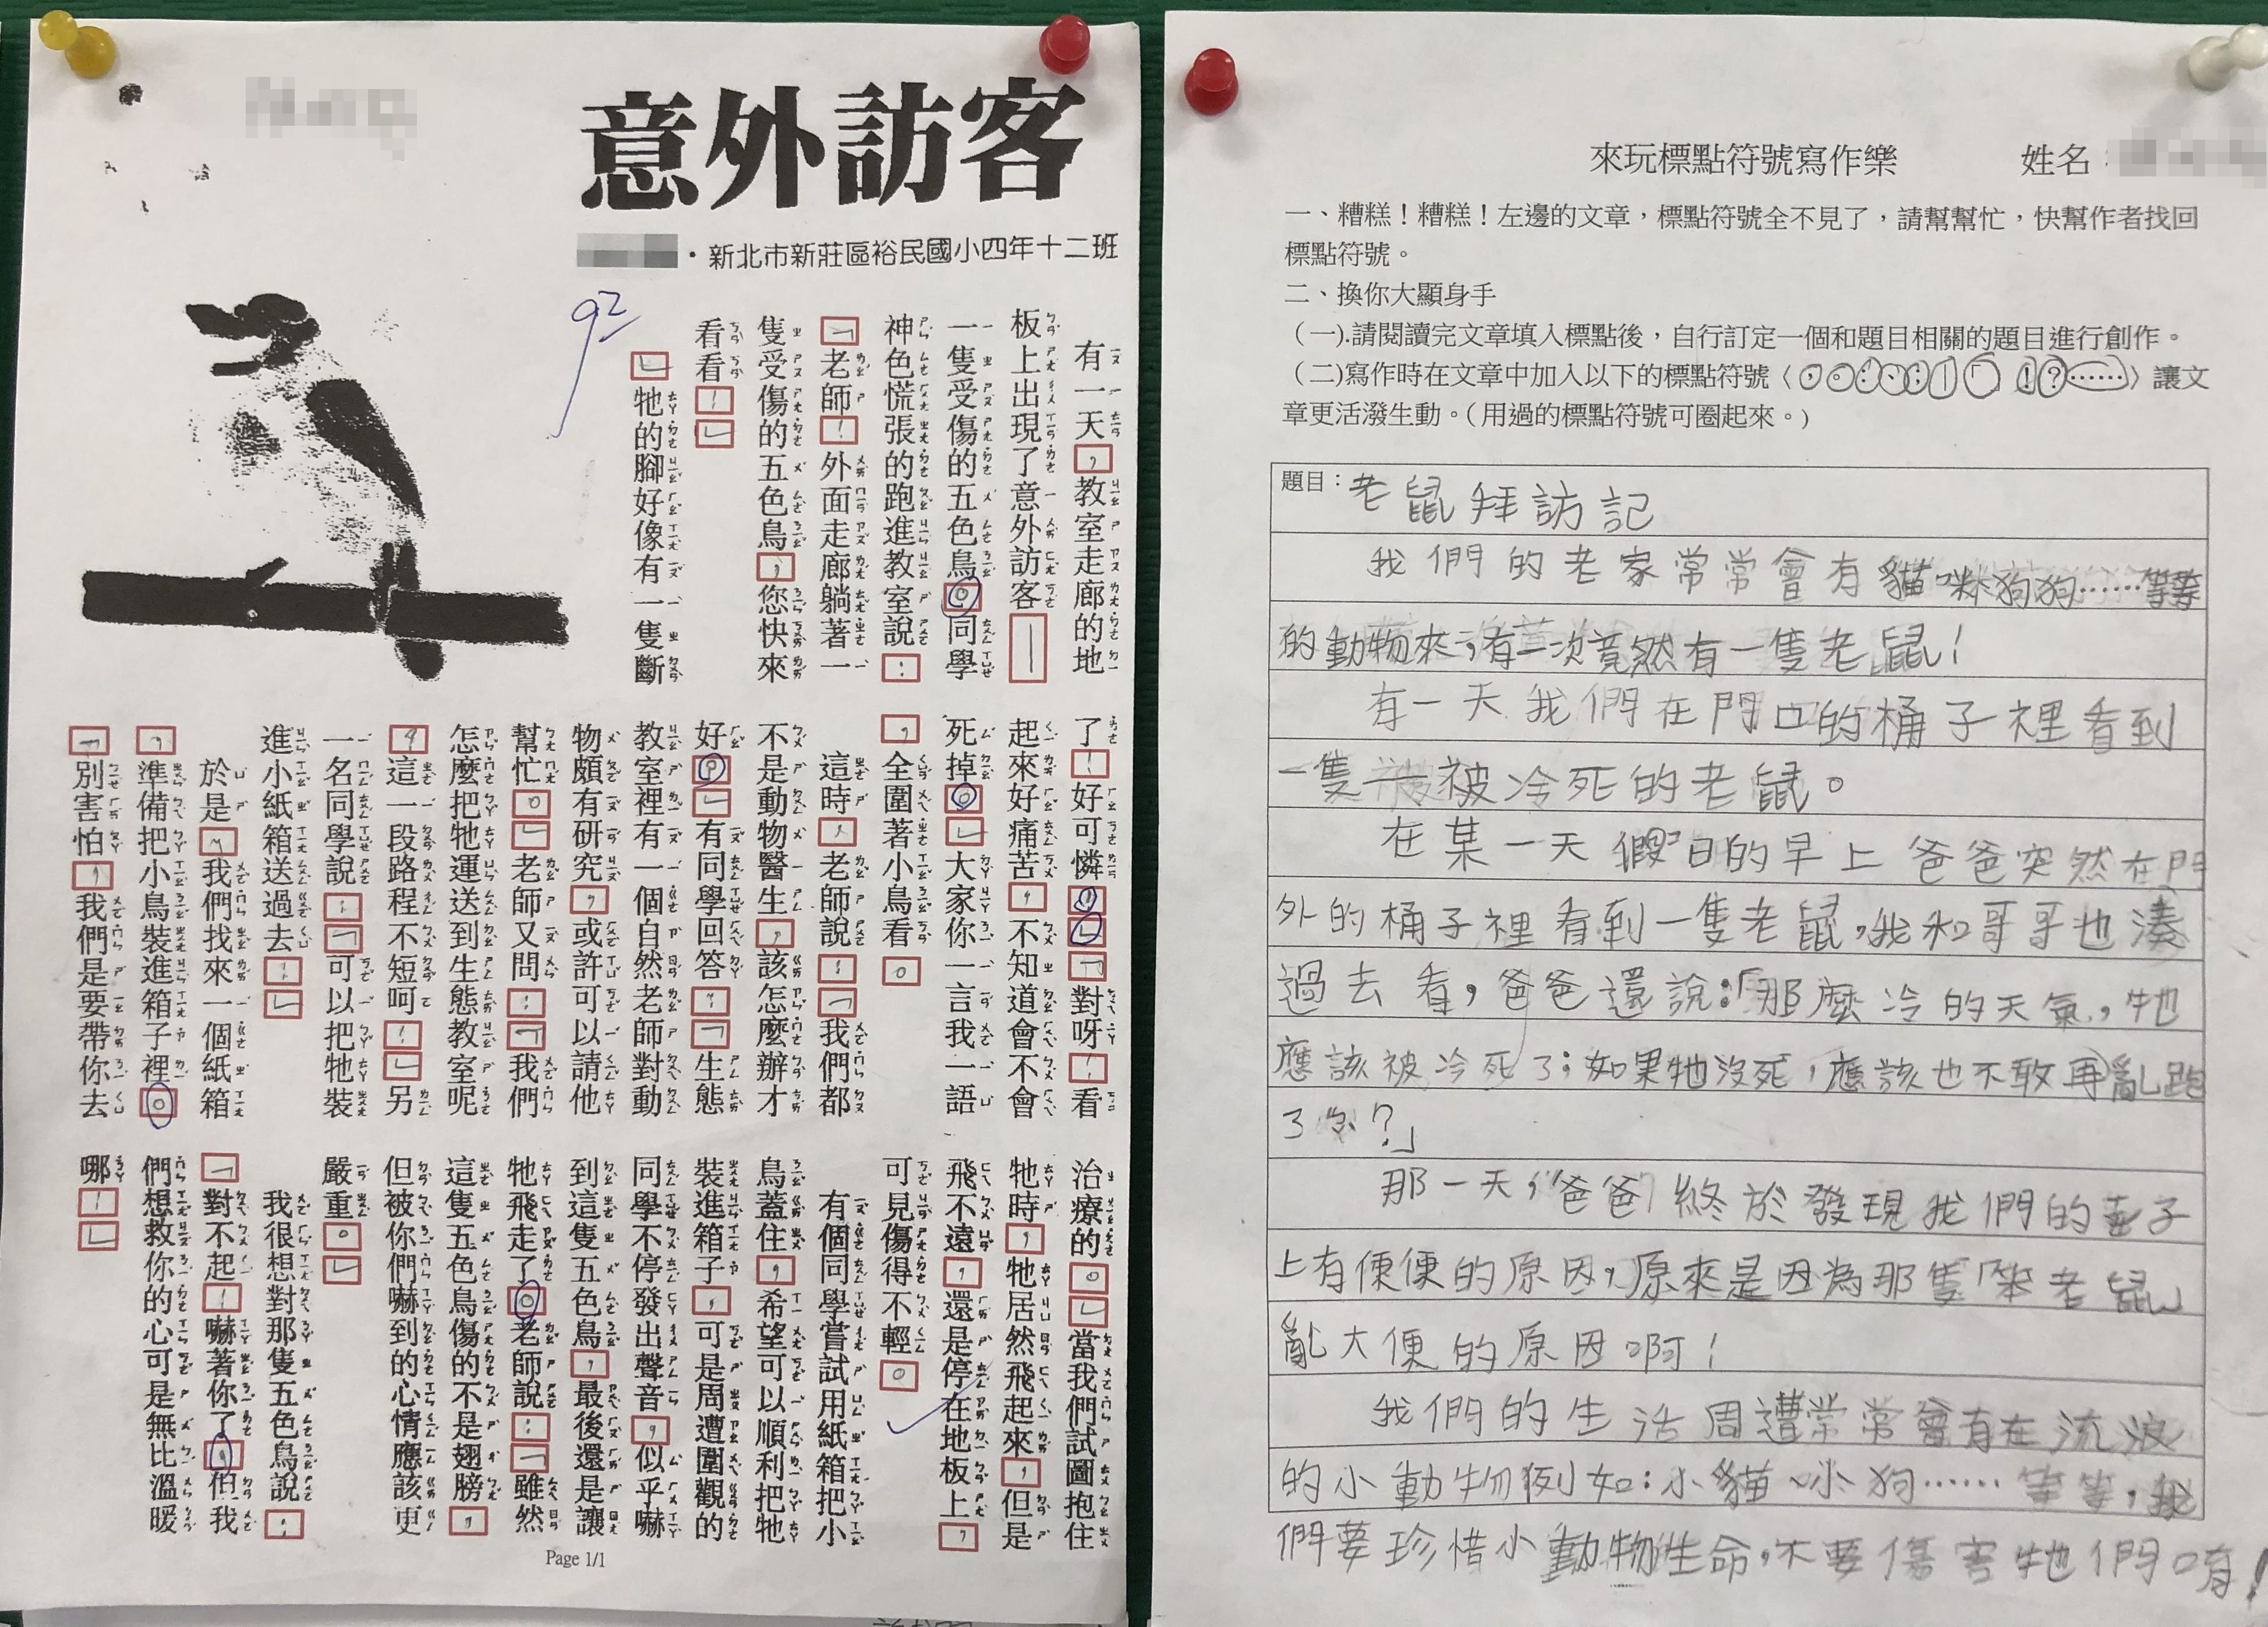 意外訪客
・新北市新莊區裕民國小四年十二班
92
有一天，教室走廊的地
板上出現了意外訪客——
一隻受傷的五色鳥。同學
神色慌張的跑進教室說：
「老師！外面走廊躺著一
隻受傷的五色鳥，您快來
看看！」
」牠的腳好像有一隻斷
了！好可憐，」「對呀！看
起來好痛苦，不知道會不會
死掉。」大家你一言我一語
，全圍著小鳥看。
這時，老師說：「我們都
不是動物醫生，該怎麼辦才
好。」有同學回答：「生態
教室裡有一個自然老師對動
物頗有研究，或許可以請他
幫忙。」老師又問：「我們
怎麼把牠運送到生態教室呢
？這一段路程不短呵！」另
一名同學說：「可以把牠裝
進小紙箱送過去！」
於是，我們找來一個紙箱
，準備把小鳥裝進箱子裡。
「別害怕，我們是要帶你去
治療的。」當我們試圖抱住
牠時，牠居然飛起來，但是
飛不遠，還是停在地板上，
可見傷得不輕。
有個同學嘗試用紙箱把小
鳥蓋住，希望可以順利把牠
裝進箱子，可是周遭圍觀的
同學不停發出聲音，似乎嚇
到這隻五色鳥，最後還是讓
牠飛走了。老師說：「雖然
這隻五色鳥傷的不是翅膀，
但被你們嚇到的心情應該更
嚴重。」
我很想對那隻五色鳥說：
「對不起！嚇著你了，但我
們想救你的心可是無比溫暖
哪！」
Page 1/1
來玩標點符號寫作樂 姓名：
一、糟糕！糟糕！左邊的文章，標點符號全不見了，請幫幫忙，快幫作者找回
標點符號。
二、換你大顯身手
（一).請閱讀完文章填入標點後，自行訂定一個和題目相關的題目進行創作。
（二)寫作時在文章中加入以下的標點符號〈，。：、；│「」！？……〉讓文
章更活潑生動。(用過的標點符號可圈起來。)
題目：老鼠拜訪記
我們的老家常常會有貓咪狗狗……等等
的動物來，有一次竟然有一隻老鼠！
有一天我們在門口的桶子裡看到
一隻被冷死的老鼠。
在某一天假日的早上爸爸突然在門
外的桶子裡看到一隻老鼠，我和哥哥也湊
過去看，爸爸還說：「那麼冷的天氣，牠
應該被冷死了；如果牠沒死，應該也不敢再亂跑
了吧？」
那一天，爸爸終於發現我們的車子
上有便便的原因，原來是因為那隻「笨老鼠」
亂大便的原因啊！
我們的生活周遭常常會有在流浪
的小動物例如：小貓、小狗……等等，我
們要珍惜小動物生命，不要傷害牠們唷！